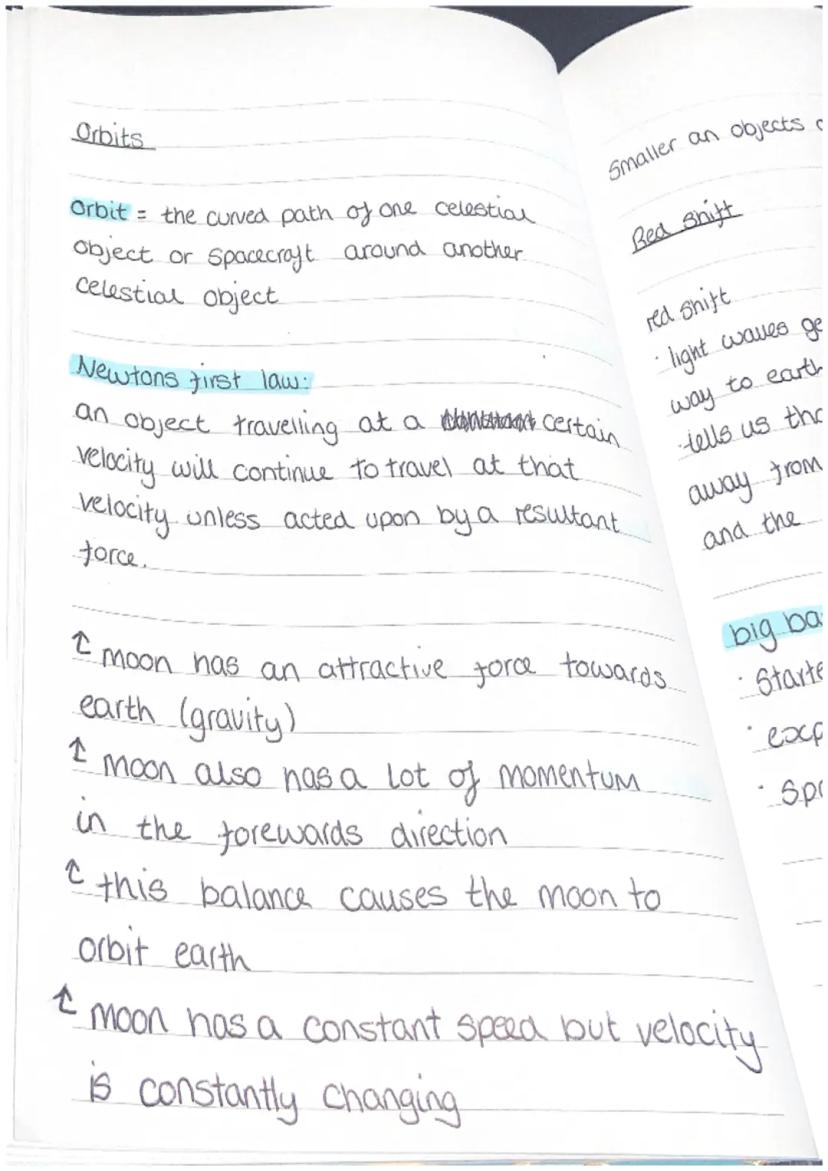 Orbits
Orbit = the curved path of one celestial
object or spacecraft around another
celestial object
Newtons first law:
an object travelling at a certain
velocity will continue to travel at that
velocity unless acted upon by a resultant
force.
↑ moon has an attractive force towards
earth (gravity)
↑ moon also has a lot of momentum
in the forewards direction
↑ this balance causes the moon to
orbit earth
↑ moon has a constant speed but velocity
is constantly changing
smaller an objects
Red shift
red shift
· light waves ge
way to earth
· tells us tha
away from
and the
big ba
· Starte
· exp
· spa